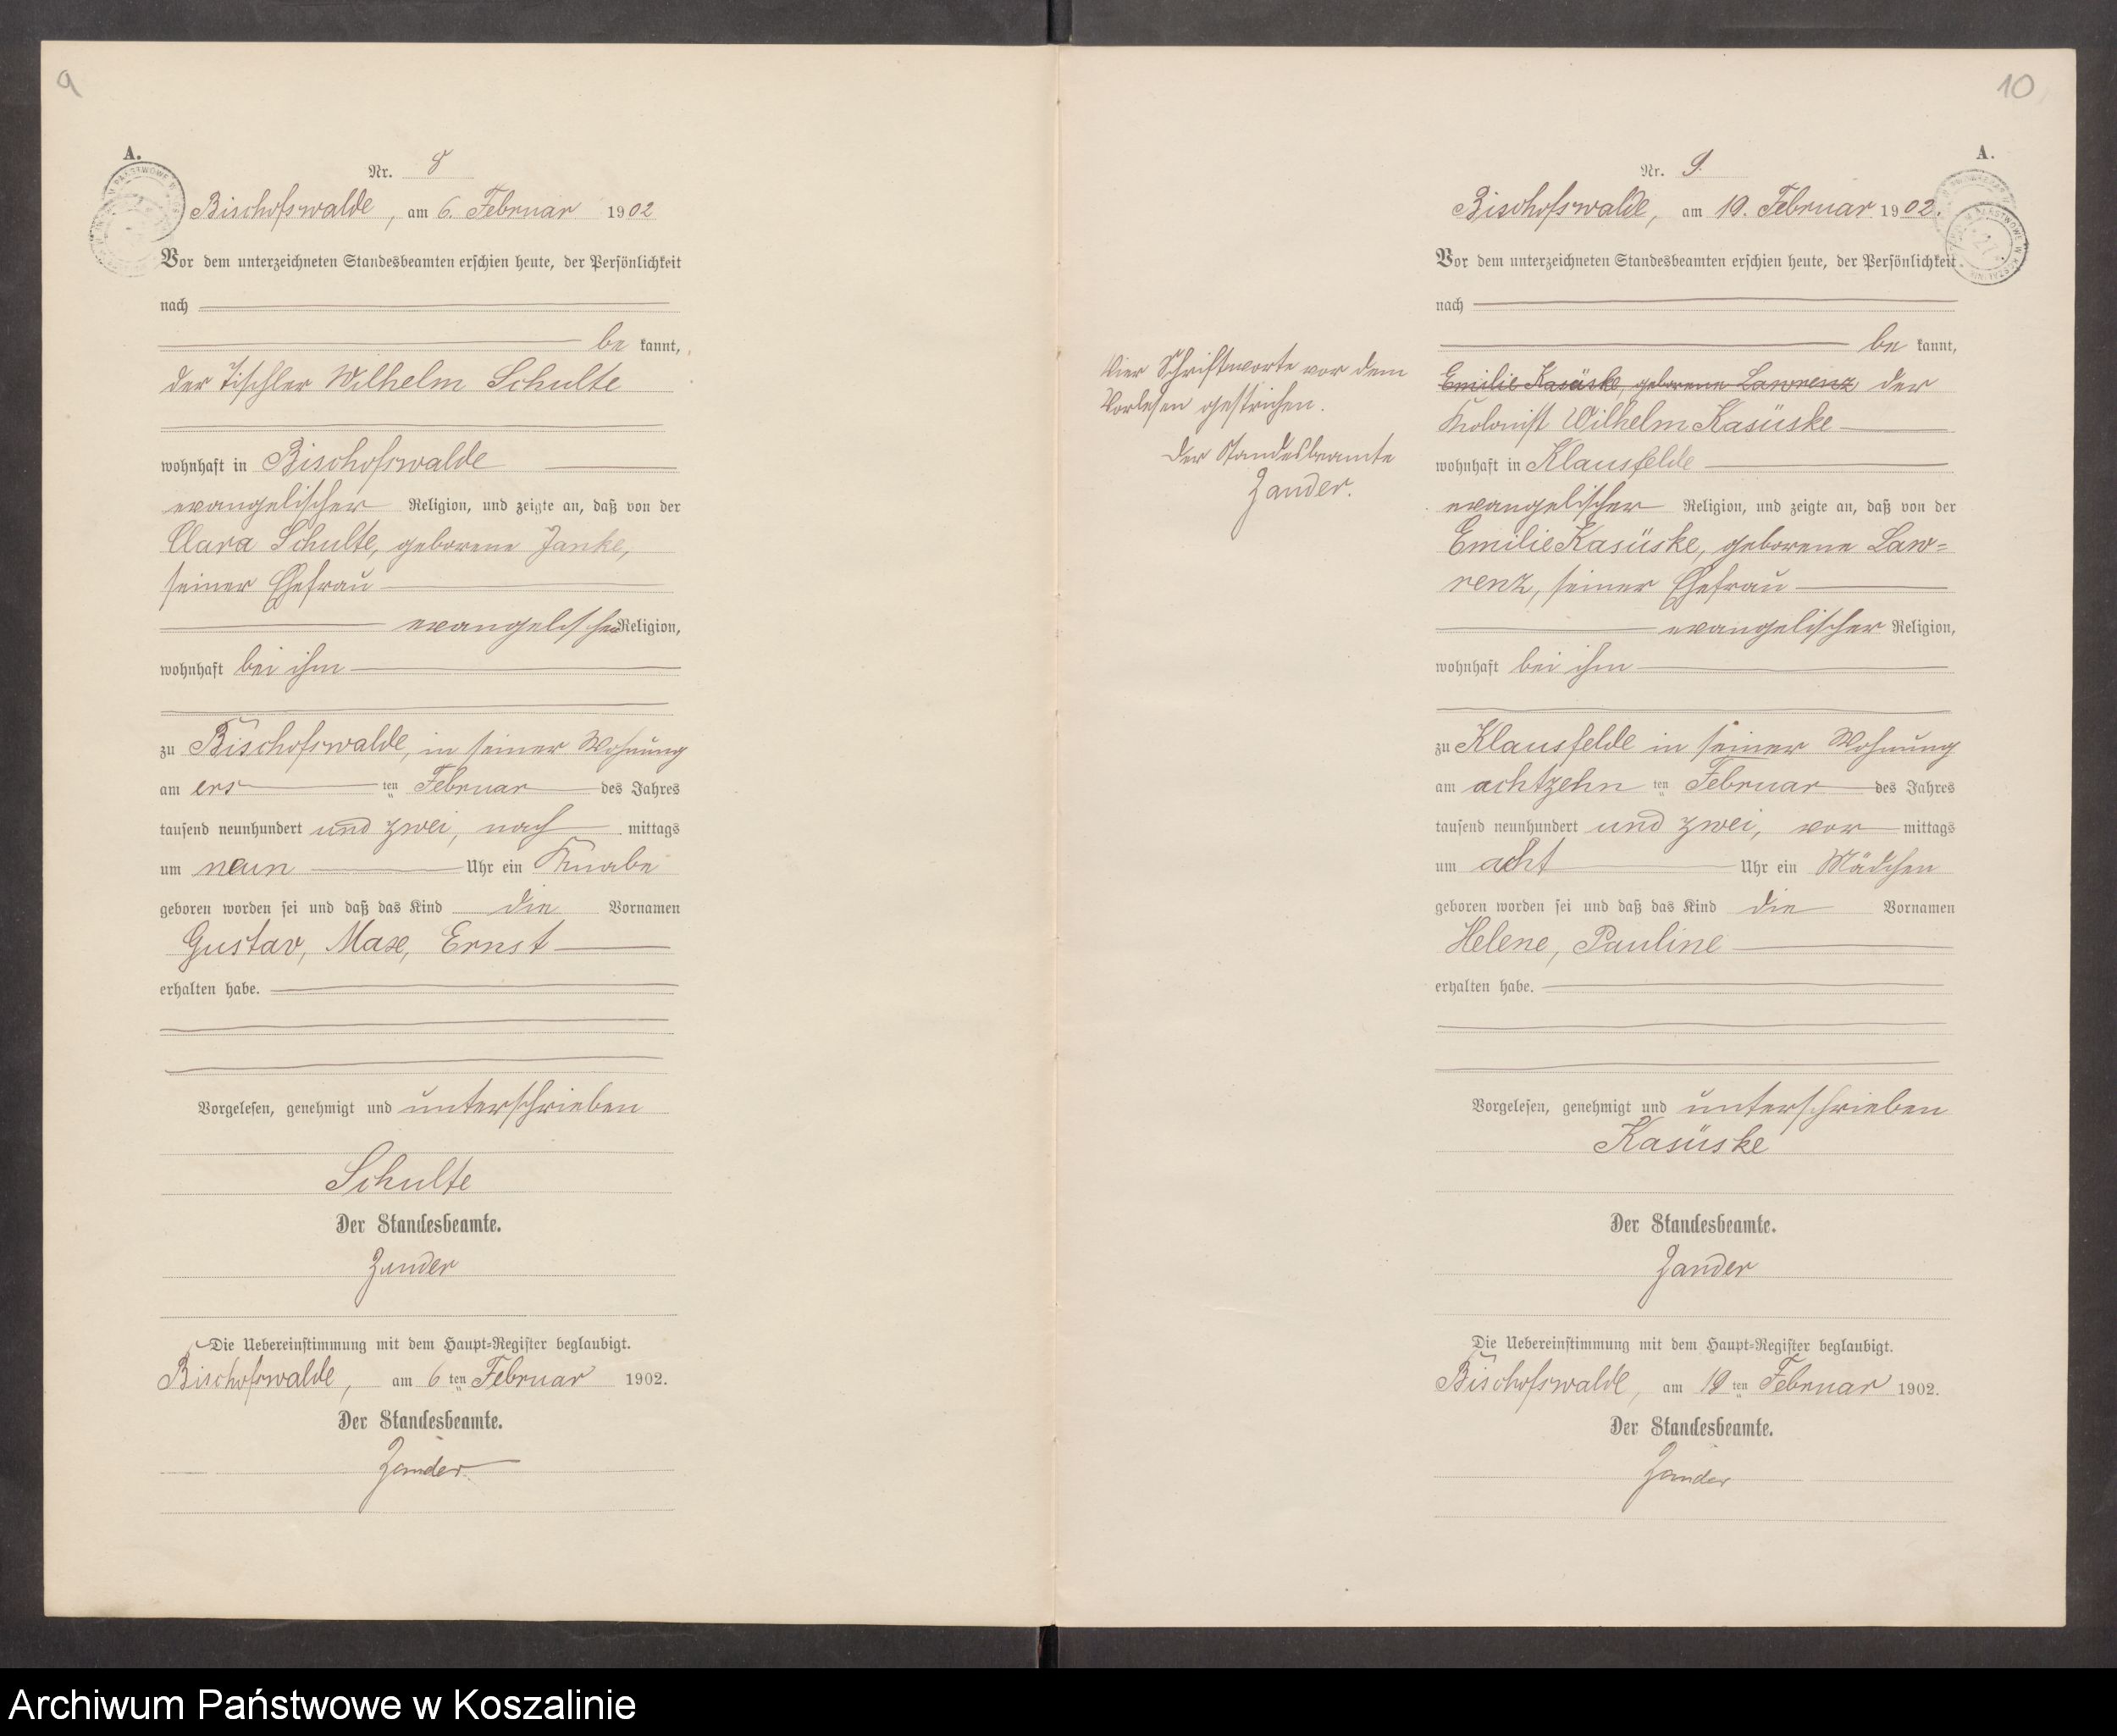 9
A.
Nr. 8
Bischofswalde, am 6. Februar 1902
Vor dem unterzeichneten Standesbeamten erschien heute, der Persönlichkeit
nach
be kannt,
der Tischler Wilhelm Schulte
wohnhaft in Bischofswalde
evangelischer Religion, und zeigte an, daß von der
Clara Schulte, geborene Janke,
seiner Ehefrau
evangelischer Religion,
wohnhaft bei ihm
zu Bischofswalde, in seiner Wohnung
am ers ten Februar des Jahres
tausend neunhundert und zwei, nach mittags
um neun Uhr ein Knabe
geboren worden sei und daß das Kind die Vornamen
Gustav, Max, Ernst
erhalten habe.
Vorgelesen, genehmigt und unterschrieben
Schulte
Der Standesbeamte.
Zander
Die Uebereinstimmung mit dem Haupt-Register beglaubigt.
Bischofswalde, am 6 ten Februar 1902.
Der Standesbeamte.
Zander
10
A.
Nr. 9.
Bischofswalde, am 19. Februar 1902.
Vor dem unterzeichneten Standesbeamten erschien heute, der Persönlichkeit
nach
be kannt,
Emilie Kasüske, geborene Lawrenz der
Kolonist Wilhelm Kasüske
wohnhaft in Klausfelde
evangelischer Religion, und zeigte an, daß von der
Emilie Kasüske, geborene Law=
renz, seiner Ehefrau
evangelischer Religion,
wohnhaft bei ihm
zu Klausfelde in seiner Wohnung
am achtzehn ten Februar des Jahres
tausend neunhundert und zwei, vor mittags
um acht Uhr ein Mädchen
geboren worden sei und daß das Kind die Vornamen
Helene, Pauline
erhalten habe.
Vorgelesen, genehmigt und unterschrieben
Kasüske
Der Standesbeamte.
Zander
Die Uebereinstimmung mit dem Haupt-Register beglaubigt.
Bischofswalde, am 19 ten Februar 1902.
Der Standesbeamte.
Zander
Vier Schriftworte vor dem
Vorlesen gestrichen.
Der Standesbeamte
Zander.
Archiwum Państwowe w Koszalinie